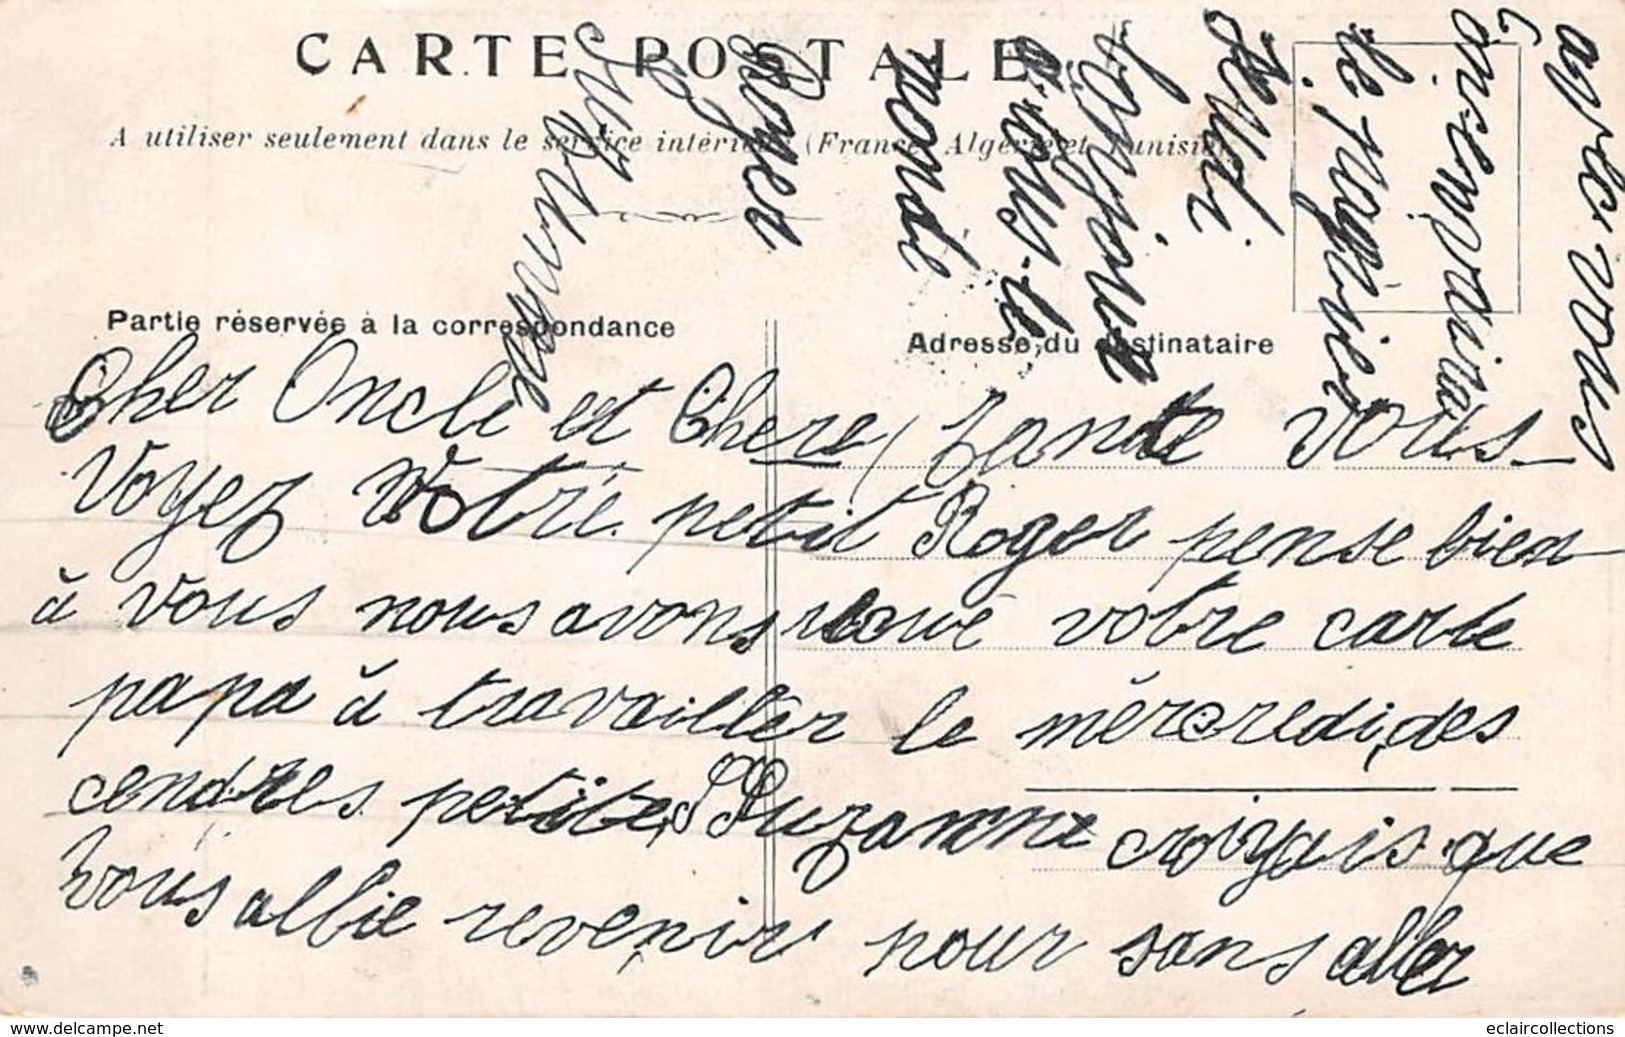 CARTE POSTALE
A utiliser seulement dans le service intérieur (France, Algérie et Tunisie)
Partie réservée à la correspondance
Adresse du destinataire
Cher Oncle et Chere Tante vous
Voyez Votre petit Roger pense bien
à vous nous avons recuve votre carte
papa à travailler le mercredi des
cendres petite Suzanne croiyais que
vous allie revenir pour sans aller
avec vous
le 1 fevrier
Henri
Bonjour
a tous le
monde
Roger
Suzanne
www.delcampe.net
eclaircollections